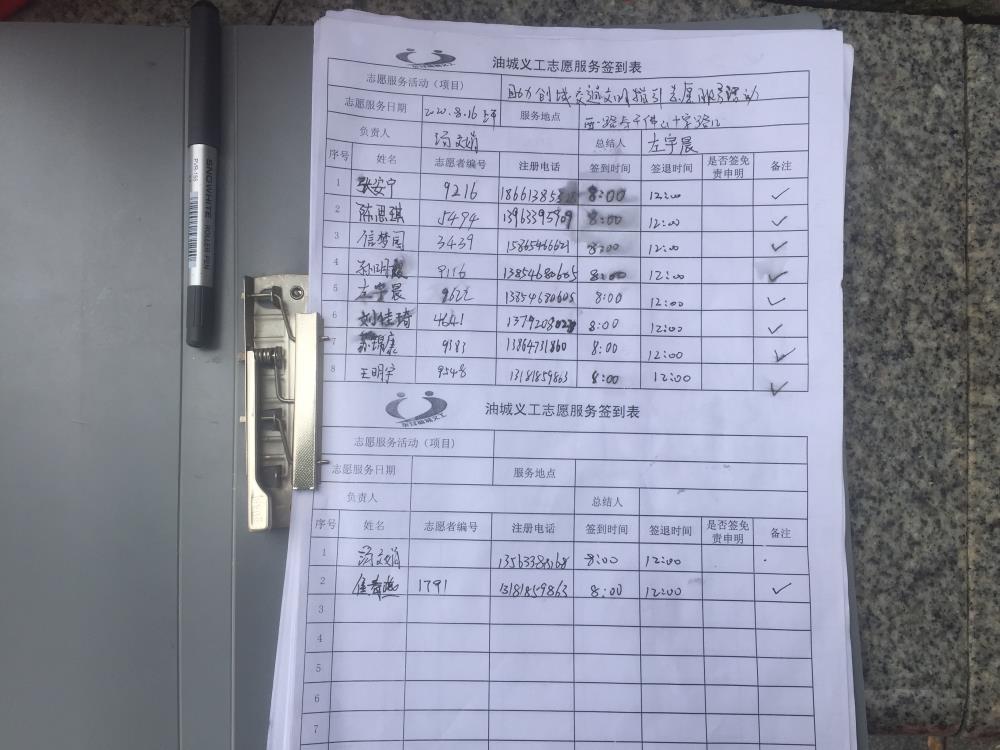 油城义工志愿服务签到表
志愿服务活动（项目） 助力创城交通文明指引志愿服务活动
志愿服务日期 2020.8.16 上午 服务地点 西一路与千佛山十字路口
负责人 汤文娟 总结人 左宇晨
序号 姓名 志愿者编号 注册电话 签到时间 签退时间 是否签免责申明 备注
1 张安宁 9216 18661385 8:00 12:00 ✓
2 陈思琪 5494 13963395909 8:00 12:00 ✓
3 信梦园 3439 15865466621 8:00 12:00 ✓
4 孙明霞 9116 13854680605 8:00 12:00 ✓
5 左宇晨 9622 13854680605 8:00 12:00 ✓
6 刘佳琦 4641 1379208 8:00 12:00 ✓
7 康 9383 13864731860 8:00 12:00 ✓
8 王明宇 9548 13181859863 8:00 12:00 ✓
油城义工志愿服务签到表
志愿服务活动（项目）
志愿服务日期 服务地点
负责人 总结人
序号 姓名 志愿者编号 注册电话 签到时间 签退时间 是否签免责申明 备注
1 汤文娟 8:00 12:00
2 1791 13181859863 8:00 12:00 ✓
3
4
5
6
7
SNOWHITE